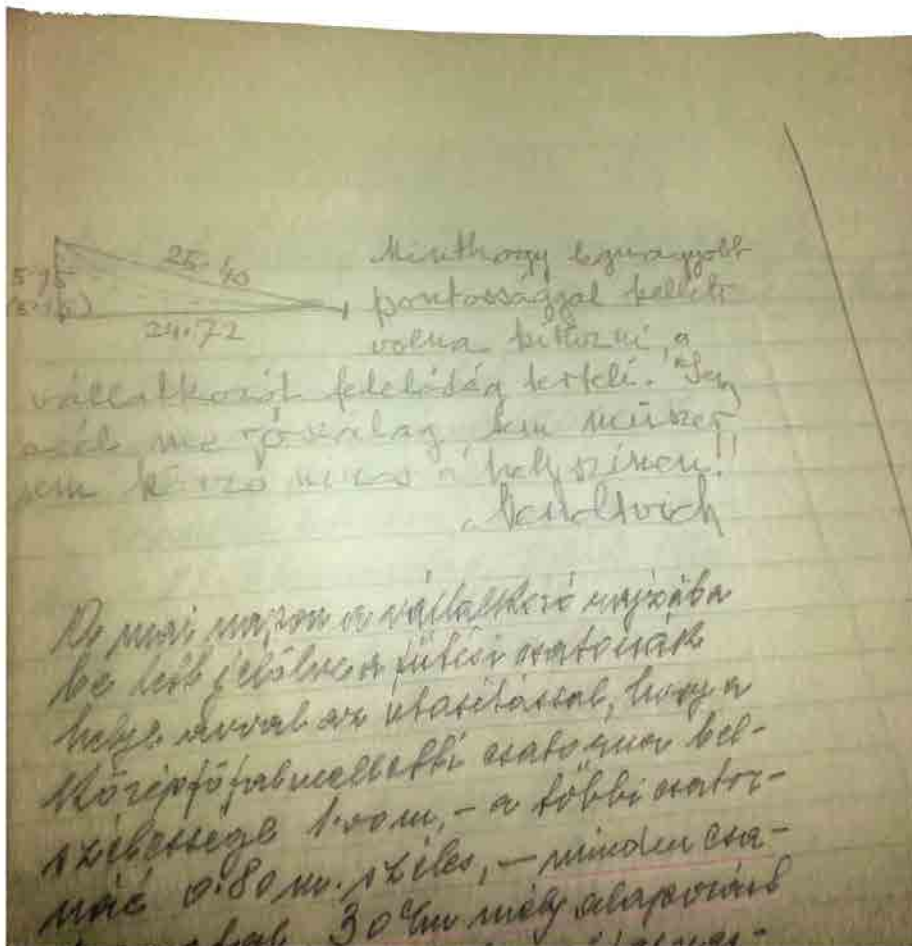 25·40
5·75
24·72
Minthogy legnagyobb
pontossággal kellett
volna kitűzni, a
vállalkozót felelősség terheli. Sem
acél mérőszalag, sem műszer
sem nincs a helyszínen!!
A mai napon a vállalkozó rajzába
be lett jelölve a fűtési csatornák
helye avval az utasítással, hogy a
középfőfalmelletti csatorna bel-
szélessége 1·00 m, – a többi csator-
náé 0·80 m. széles, – minden csa-
30 cm mély